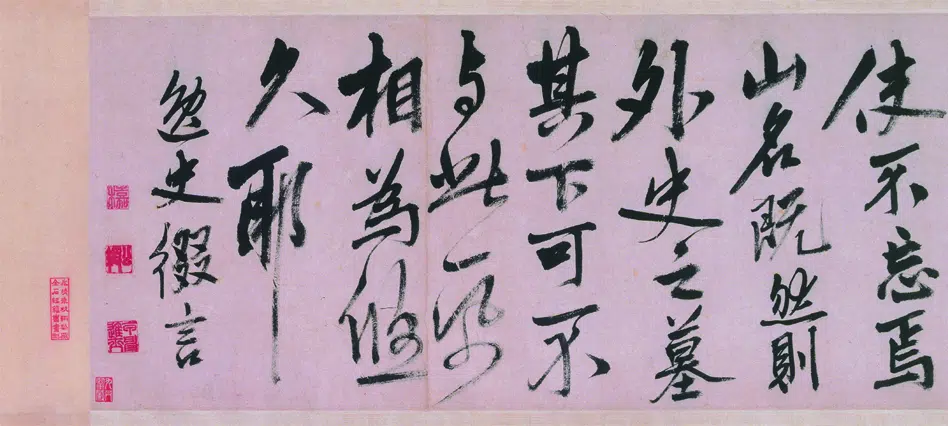 使不忘焉
山名既然則
外史之墓
其下可不
与此一
相為悠
久耶
逸史綴言